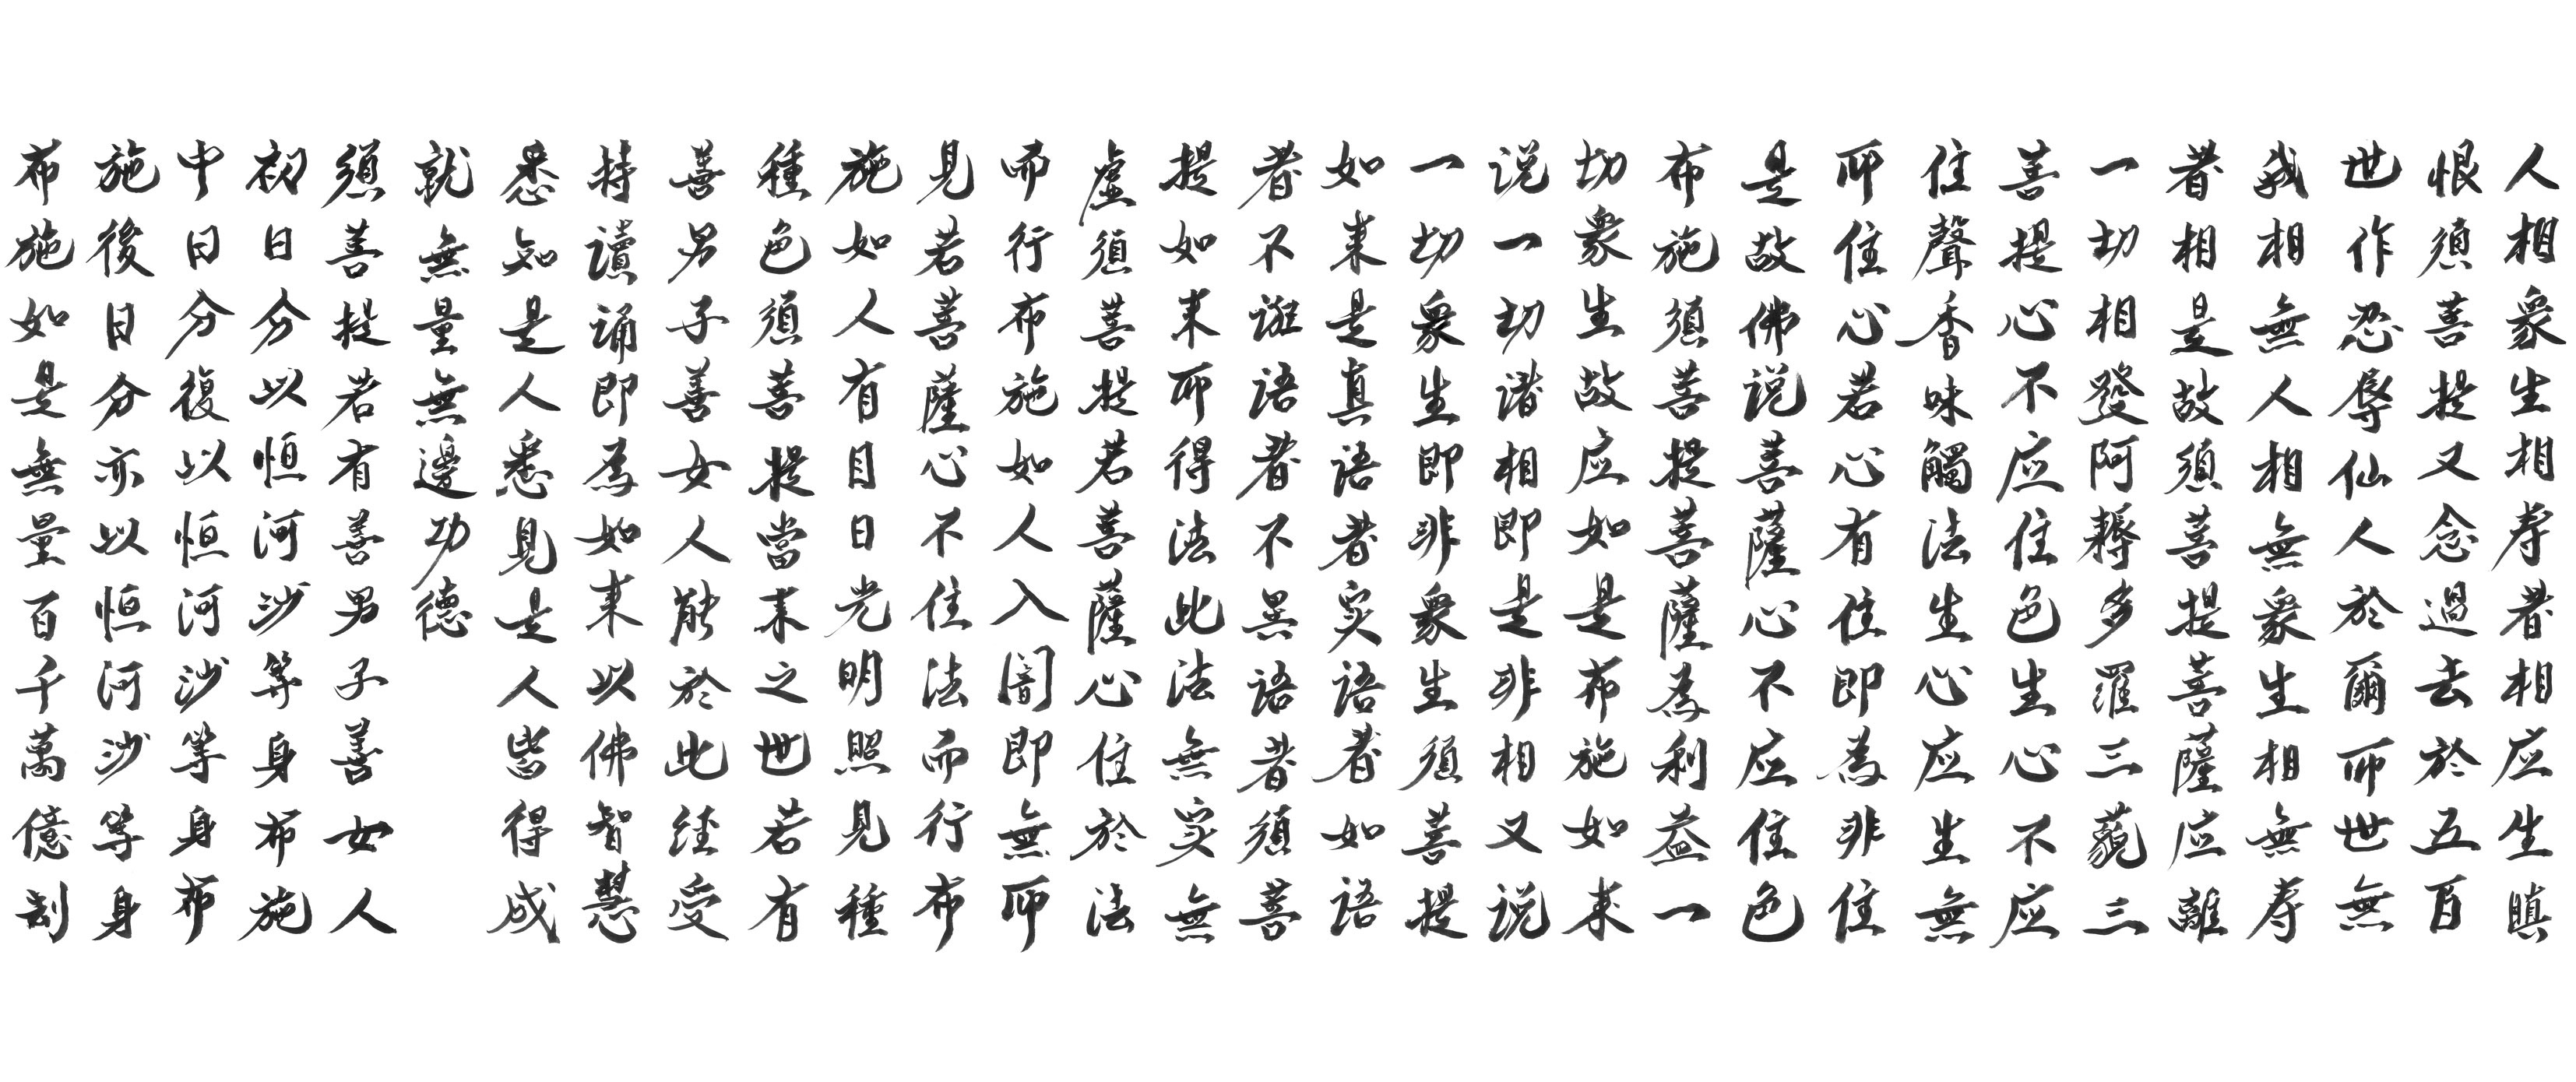 人相衆生相寿者相应生瞋
恨須菩提又念過去於五百
世作忍辱仙人於爾所世無
我相無人相無衆生相無寿
者相是故須菩提菩薩应離
一切相發阿耨多羅三藐三
菩提心不应住色生心不应
住聲香味觸法生心应生無
所住心若心有住即為非住
是故佛说菩薩心不应住色
布施須菩提菩薩為利益一
切衆生故应如是布施如来
说一切諸相即是非相又说
一切衆生即非衆生須菩提
如来是真語者实語者如語
者不誑語者不異語者須菩
提如来所得法此法無实無
虚須菩提若菩薩心住於法
而行布施如人入闇即無所
見若菩薩心不住法而行布
施如人有目日光明照見種
種色須菩提當来之世若有
善男子善女人能於此经受
持讀誦即為如来以佛智慧
悉知是人悉見是人皆得成
就無量無邊功德
須菩提若有善男子善女人
初日分以恒河沙等身布施
中日分復以恒河沙等身布
施後日分亦以恒河沙等身
布施如是無量百千萬億劫